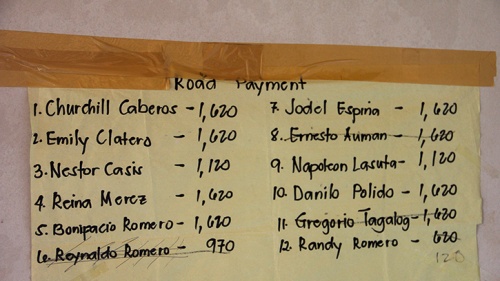 Road Payment
1. Churchill Caberos - 1,620
2. Emily Clatero - 1,620
3. Nestor Casis - 1,120
4. Reina Merez - 1,620
5. Bonipacio Romero - 1,620
6. Reynaldo Romero - 970
7. Jodel Espina - 1,620
8. Ernesto Auman - 1,620
9. Napoleon Lasuta - 1,120
10. Danilo Polido - 1,620
11. Gregorio Tagalog - 1,620
12. Randy Romero - 620
120